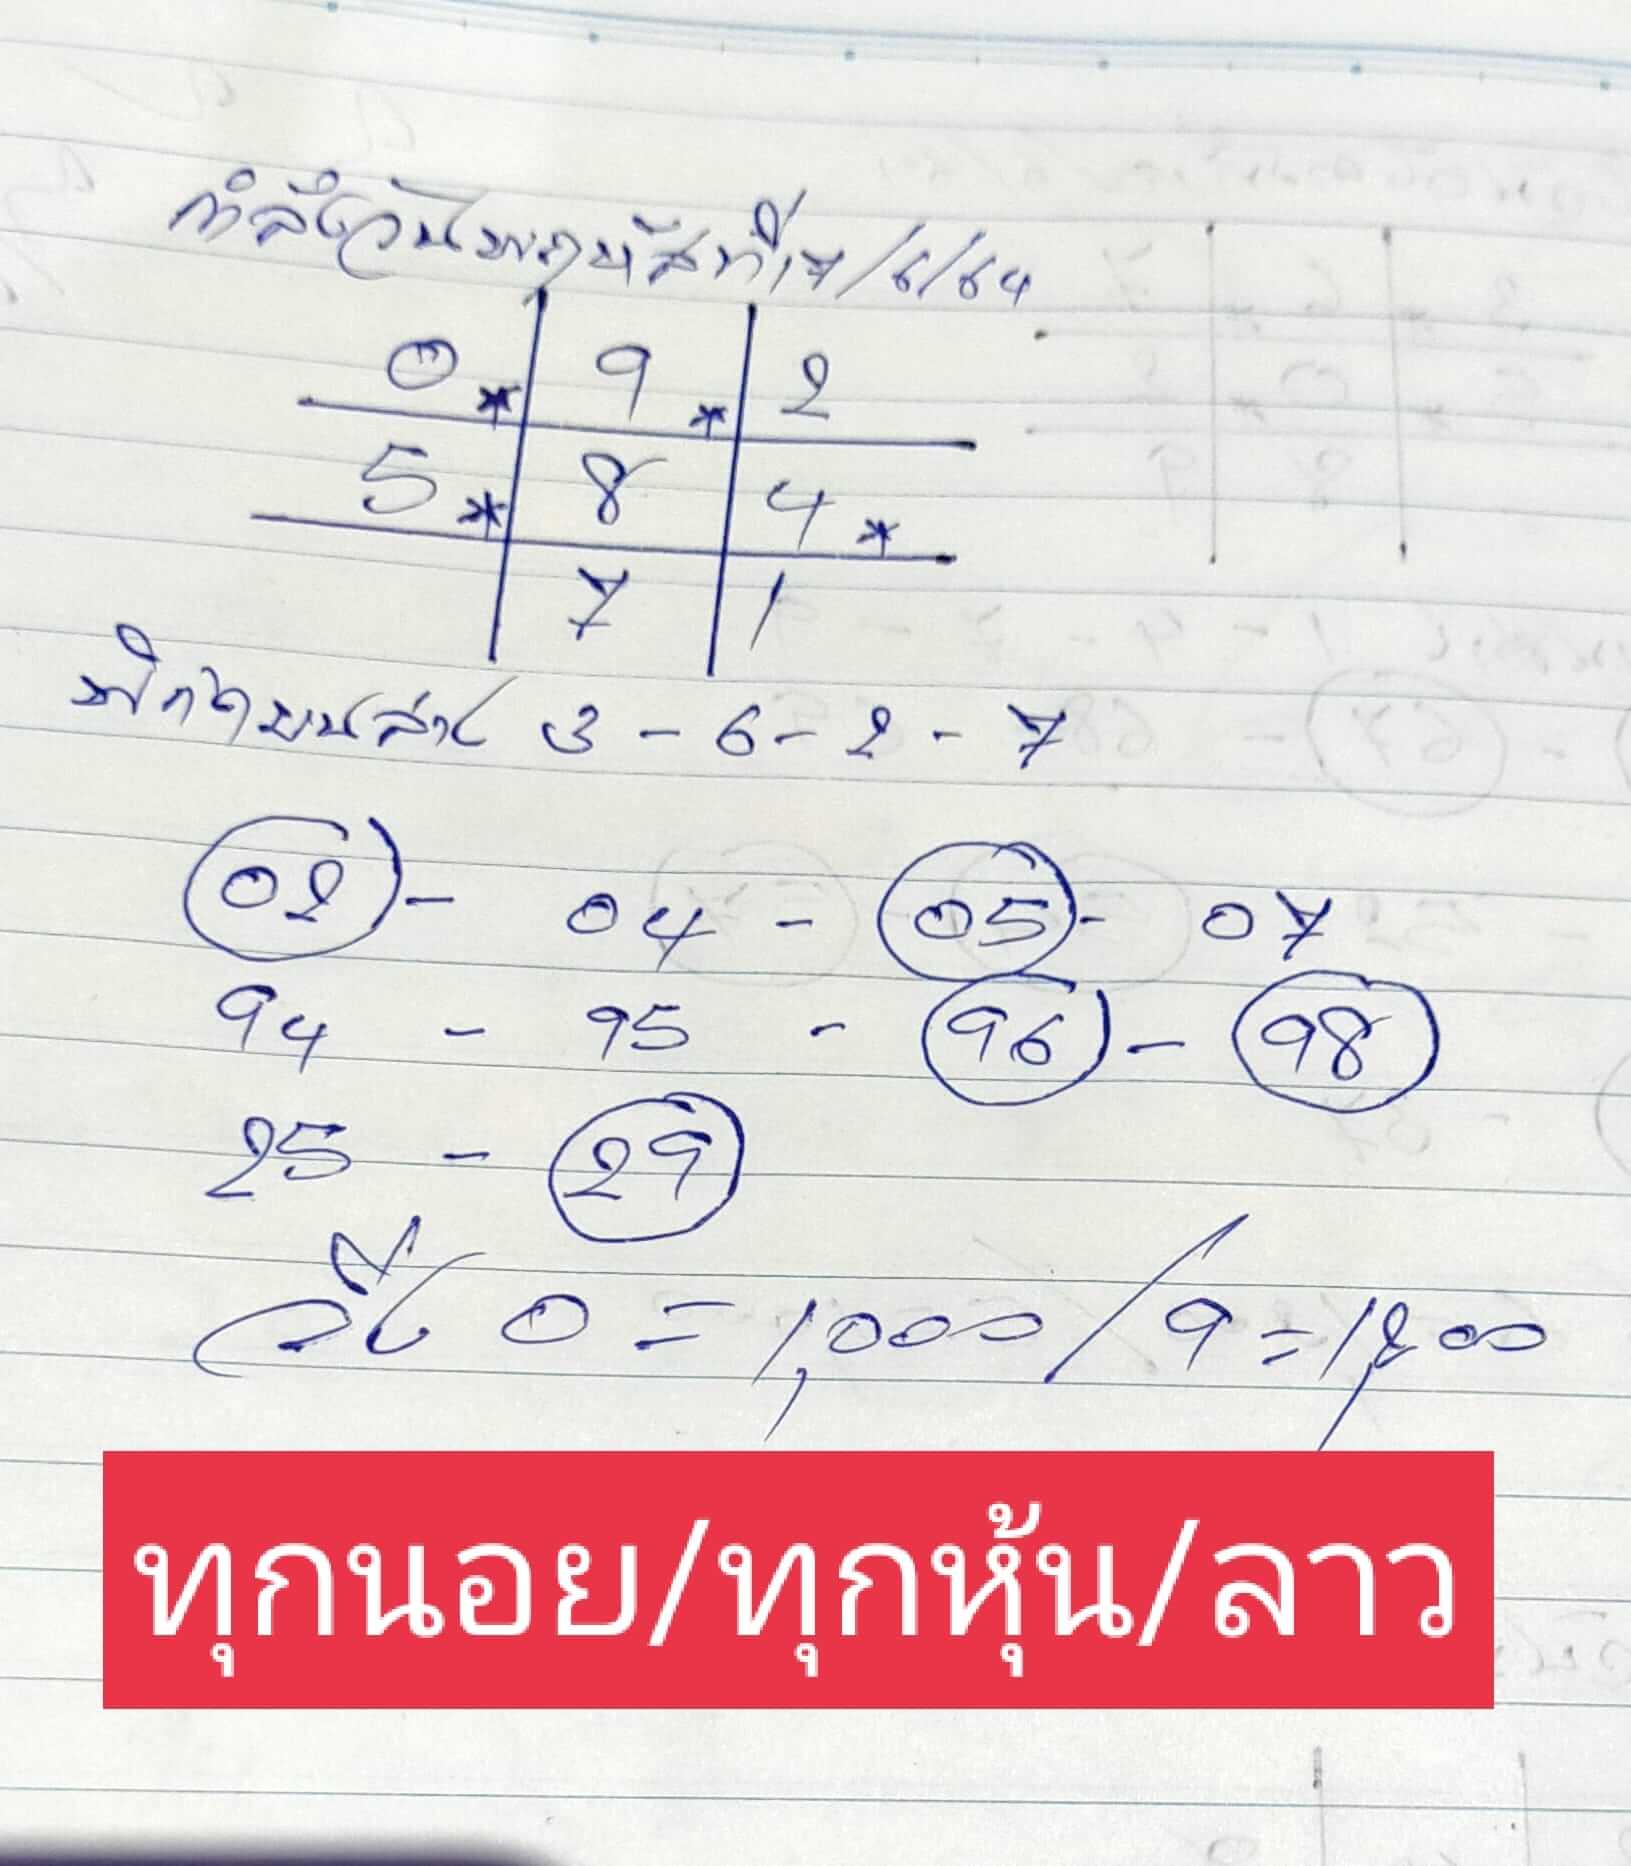 กำลังวันพฤหัสที่ 17/6/64
0* 9* 2
5* 8 4*
7 1
พิกัดบนล่าง 3 - 6 - 2 - 7
02 - 04 - 05 - 07
94 - 95 - 96 - 98
25 - 29
วิ่ง 0 = 1,000 / 9 = 1,200
ทุกนอย/ทุกหุ้น/ลาว